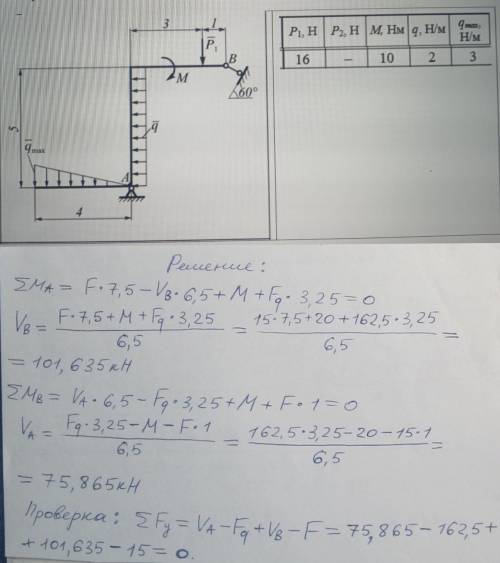 3
1
P̅₁
B
M
60°
5
q̅
q̅max
A
4
P₁, Н P₂, Н M, Нм q, Н/м qmax, Н/м
16 – 10 2 3
Решение:
ΣMA = F·7,5 – VB·6,5 + M + Fq·3,25 = 0
VB = (F·7,5 + M + Fq·3,25)/6,5 = (15·7,5 + 20 + 162,5·3,25)/6,5 =
= 101,635 кН
ΣMB = VA·6,5 – Fq·3,25 + M + F·1 = 0
VA = (Fq·3,25 – M – F·1)/6,5 = (162,5·3,25 – 20 – 15·1)/6,5 =
= 75,865 кН
Проверка: ΣFy = VA – Fq + VB – F = 75,865 – 162,5 +
+ 101,635 – 15 = 0.